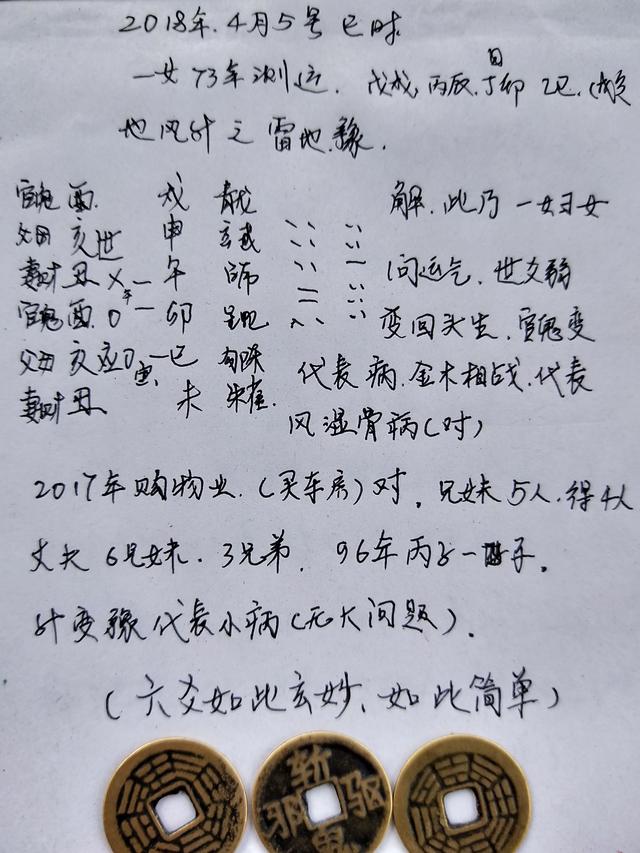 2018年.4月5号 巳时
一女73年测运. 戊戌,丙辰.丁卯日 乙巳.(戌亥
地风升之雷地豫.
官鬼 酉. 戌 青龙
父母 亥世 申 玄武
妻财 丑 X — 午
官鬼 酉. O — 卯
父母 亥应O — 巳 勾陈
妻财 丑 未 朱雀.
解.此乃 一妇女
问运气.世爻弱
变回头生.官鬼变
代表病.金木相战.代表
风湿骨病(对)
2017年购物业.(买车房)对.兄妹5人.得4人
丈夫6兄妹.3兄弟. 96年丙子一子.
升变豫代表小病(无大问题).
(六爻如此玄妙、如此简单)
斩
邪 驱
鬼